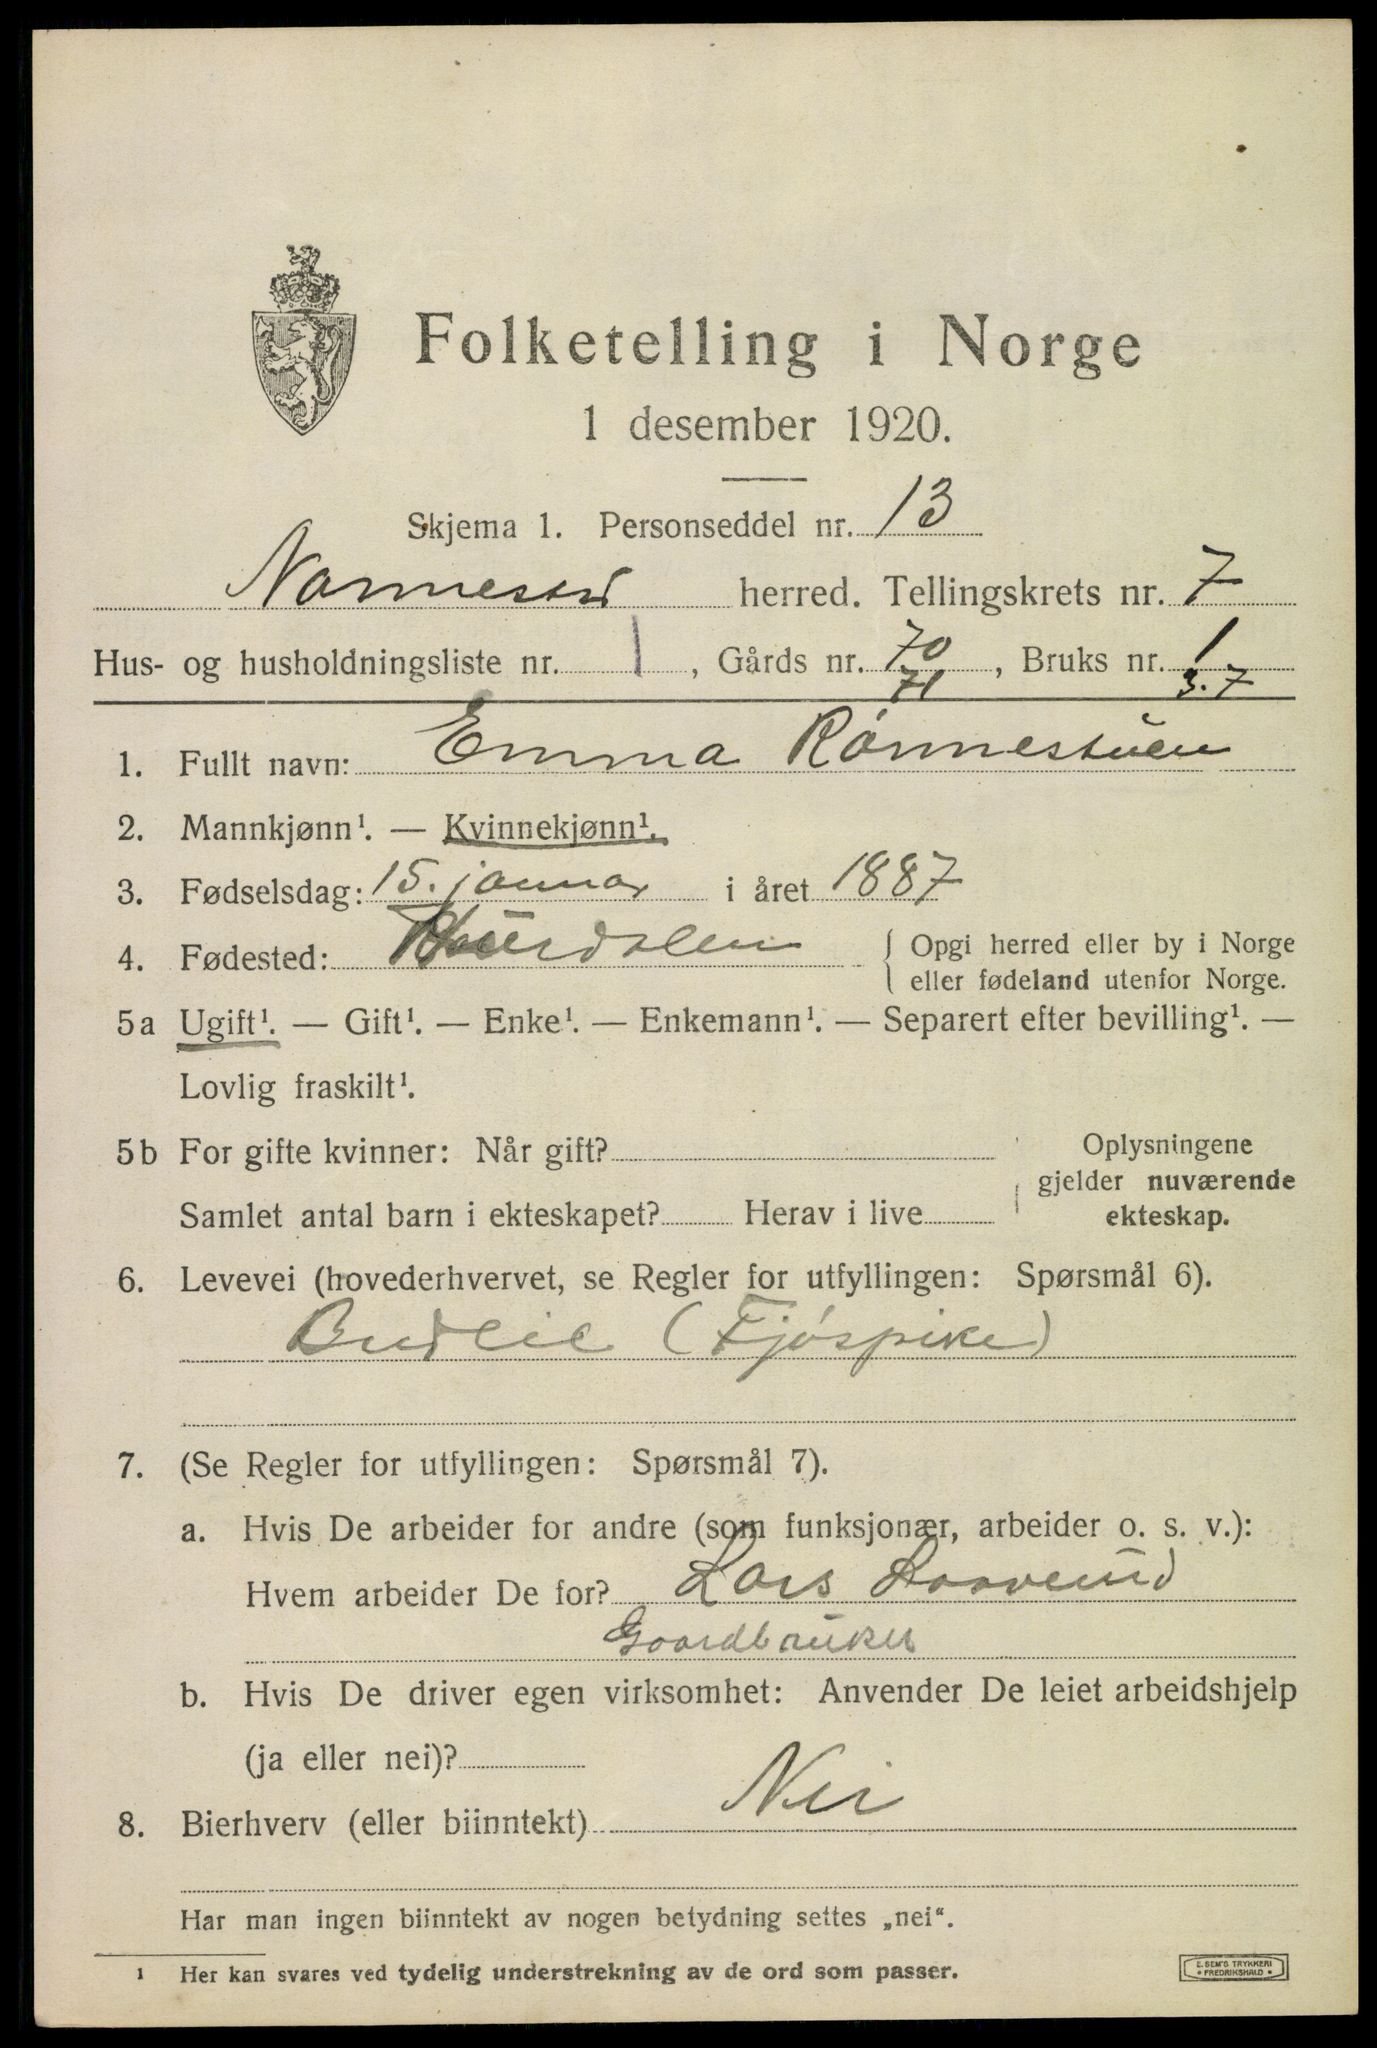 Folketelling i Norge
1 desember 1920.
Skjema 1. Personseddel nr. 13
Nannestad herred. Tellingskrets nr. 7
Hus- og husholdningsliste nr. 1, Gårds nr. 70, Bruks nr. 1
71 3.7
1. Fullt navn: Emma Rönnestuen
2. Mannkjønn¹. — Kvinnekjønn¹.
3. Fødselsdag: 15. januar i året 1887
4. Fødested: Hurdalen { Opgi herred eller by i Norge
eller fødeland utenfor Norge.
5a Ugift¹. — Gift¹. — Enke¹. — Enkemann¹. — Separert efter bevilling¹. —
Lovlig fraskilt¹.
5b For gifte kvinner: Når gift?
Samlet antal barn i ekteskapet? Herav i live
Oplysningene
gjelder nuværende
ekteskap.
6. Levevei (hovederhvervet, se Regler for utfyllingen: Spørsmål 6).
Budeie (Fjóspike)
7. (Se Regler for utfyllingen: Spørsmål 7).
a. Hvis De arbeider for andre (som funksjonær, arbeider o. s. v.):
Hvem arbeider De for? Lars
Gaardbruker
b. Hvis De driver egen virksomhet: Anvender De leiet arbeidshjelp
(ja eller nei)?
8. Bierhverv (eller biinntekt) Nei
Har man ingen biinntekt av nogen betydning settes „nei“.
¹ Her kan svares ved tydelig understrekning av de ord som passer.
E. SEM'S TRYKKERI
• FREDRIKSHALD •